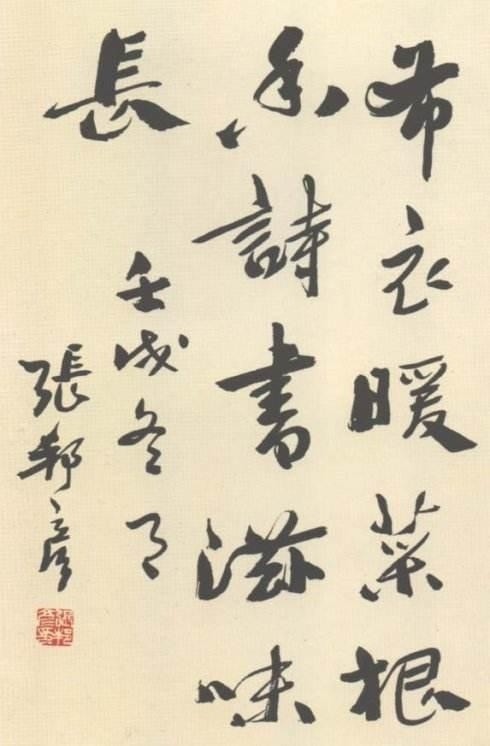 布衣暖菜根
香詩書滋味
長
壬戌冬月
張邦彥